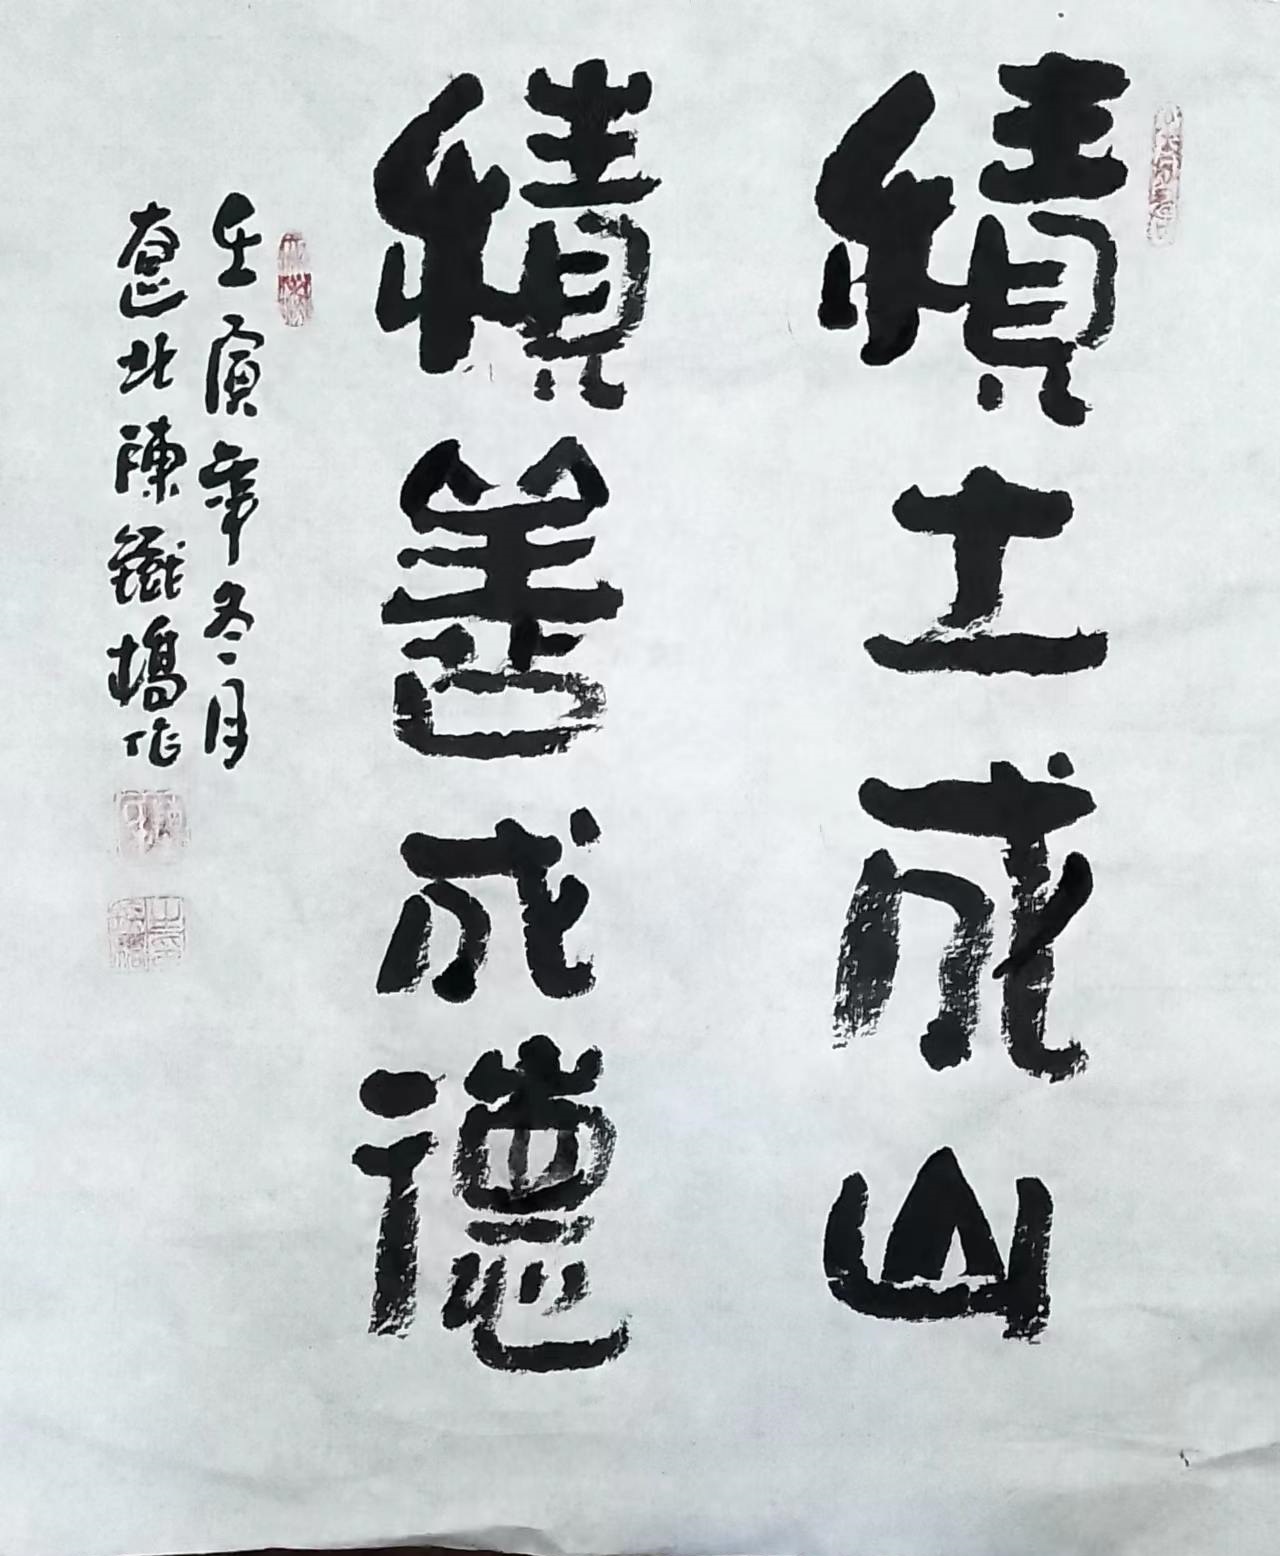 積土成山
積善成德
壬寅年冬月
臺北陳鐵橋作